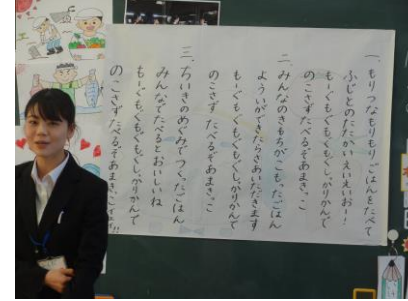 一、もりつなもりもりごはんをたべて
ふじとのたたかいえいえいおー！
もーぐもぐもぐもぐしっかりかんで
のこさずたべるぞあまきっこ
二、みんなのきもちがこもったごはん
よういができたらさあいただきます
もーぐもぐもぐもぐしっかりかんで
のこさずたべるぞあまきっこ
三、ちいきのめぐみでつくったごはん
みんなでたべるとおいしいね
もーぐもぐもぐもぐしっかりかんで
のこさずたべるぞあまきっこ